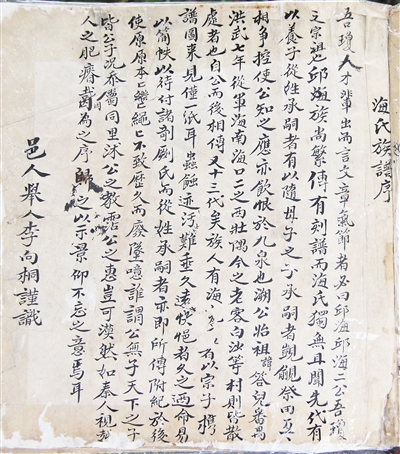 海氏族譜序
吾瓊人才輩出而言文章氣節者必曰邱海邱海二公吾瓊
之宗祖也邱姓族尚繁傳有刻譜而海氏獨無且聞先代有
以養子從姓承嗣者有以隨母子之子承嗣者覬覦祭田互
相爭控使公知之應亦飲恨於九泉也溯公始祖諱答兒番禺
洪武七年從軍海南海口二之西壯隅今之老袁白沙等村則皆散
處者也自公而後相傳又十三代矣族人有海 有以宗子攜
譜圖來見僅一紙耳蟲蝕迹污難垂久遠悞悒者久之爰命易
以箭帙以待付諸剞劂氏而從姓承嗣者亦即所傳附紀於後
使原原本本繼繩繩不致歷久而廢墜噫誰謂公無子天下之子
皆公子況忝屬同里沐公之教霑公之惠豈可漠然如秦人視越
人之肥瘠 為之序 之以示景仰不忘之意焉耳
邑人舉人李向桐謹識